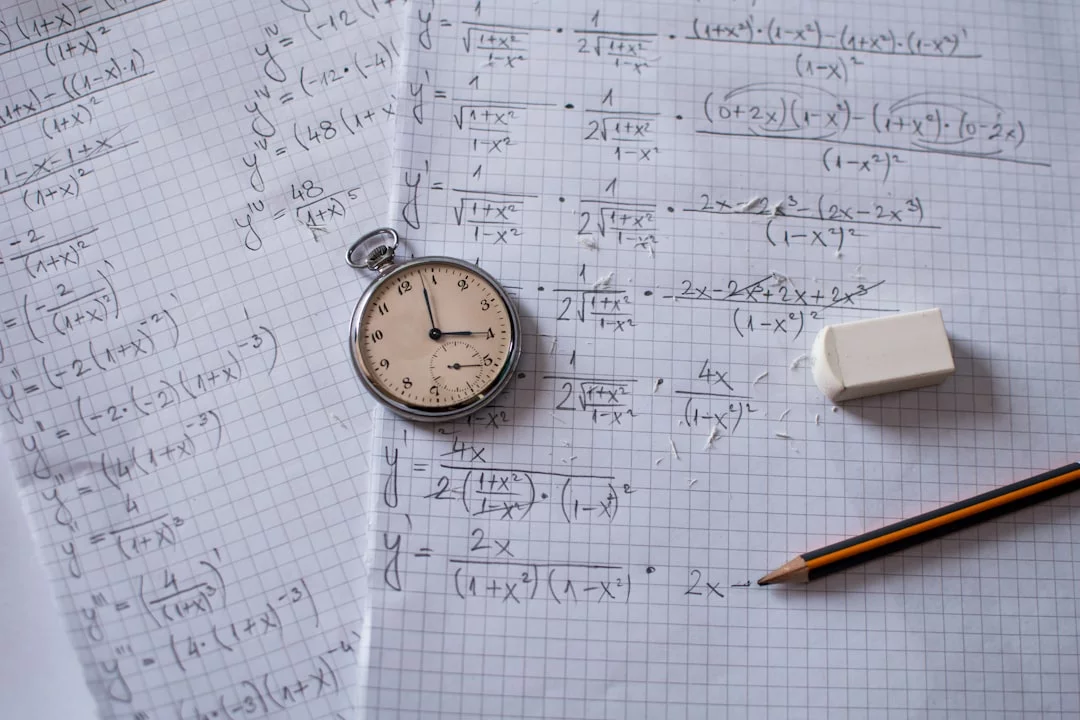 (1+x)
(1+x)²
(1+x) - ((1-x)·1)
(1+x)²
1-x-1+x
(1+x)²
-2
(1+x)²
= (-2/(1+x)²)'
y'' = (-2(1+x)⁻²)'
y'' = (-2·(-2)(1+x)⁻³)
y'' = (4(1+x)⁻³)
y'' = 4/(1+x)³
y''' = (4/(1+x)³)'
y''' = (4·(1+x)⁻³)'
·(-3)(1+x)⁻⁴
yᴵⱽ = (-12(1+
yᴵⱽ = (-12·(-4)(
yᴵⱽ = (48(1+x
yᴵⱽ = 48/(1+x)⁵
y' = 1/√((1+x²)/(1-x²)) · 1/(2√((1+x²)/(1-x²))) · ((1+x²)'·(1-x²)-(1+x²)·(1-x²)')/(1-x)²
y' = 1/√((1+x²)/(1-x²)) · 1/(2√((1+x²)/(1-x²))) · ((0+2x)(1-x²)-(1+x²)·(0-2x))/(1-x²)²
y' = 1/√((1+x²)/(1-x²)) · 1/(2√((1+x²)/(1-x²))) · (2x-2x³-(2x-2x³))/(1-x²)²
· 1/(2√((1+x²)/(1-x²))) · (2x-2x³+2x+2x³)/(1-x²)²
1-x² · 1/(2√((1+x²)/(1-x²))) · 4x/(1-x²)²
y' = 4x/(2·((1+x²)/(1-x²))·(1-x²)²)
y' = 2x/((1+x²)(1-x²)) · 2x -
12 1 2 3 4 5 8 9 10 11